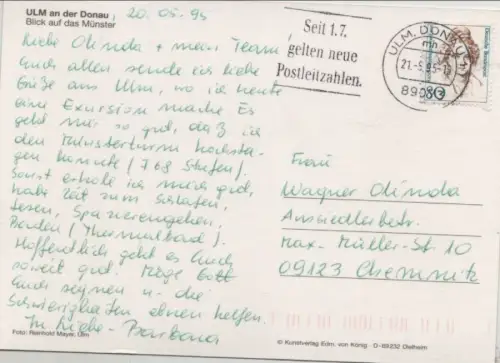 ULM an der Donau, 20.05.95
Blick auf das Münster
Liebe Olinda + mein Team,
Euch allen sende ich liebe
Grüße aus Ulm, wo ich heute
eine Exursion mache. Es
geht mir so gut, daß ich
den Münsterturm hochstei-
gen konnte (768 Stufen).
Sonst erhole ich mich gut,
habe Zeit zum Schlafen,
Lesen, Spazierengehen,
Baden (Thermalbad).
Hoffentlich geht es Euch
soweit gut. Möge Gott
Euch segnen u. die
Schwierigkeiten ebnen helfen.
In Liebe - Barbara
Foto: Reinhold Mayer, Ulm
Seit 1.7.
gelten neue
Postleitzahlen.
ULM, DONAU 1
mh
21.-5.95-
890
80
Frau
Wagner Olinda
Aussiedlerbetr.
Max-Müller-St. 10
09123 Chemnitz
© Kunstverlag Edm. von König · D-69232 Dielheim